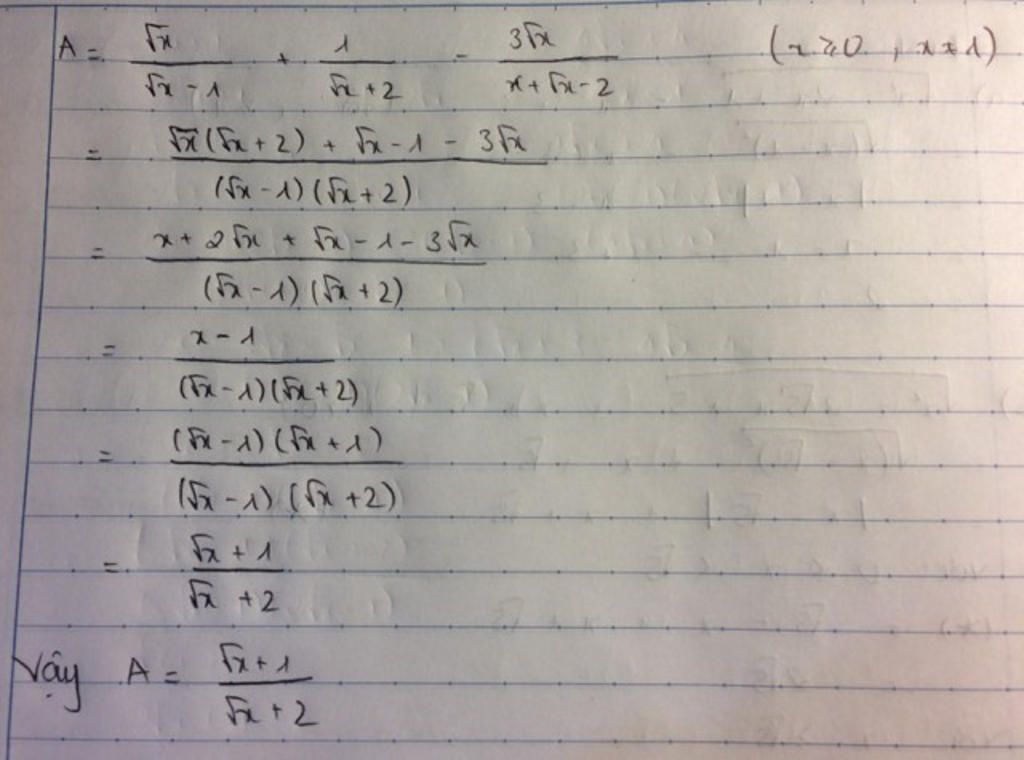 A = √x/(√x - 1) + 1/(√x + 2) - 3√x/(x + √x - 2) (x ≥ 0, x ≠ 1)
= (√x(√x + 2) + √x - 1 - 3√x)/((√x - 1)(√x + 2))
= (x + 2√x + √x - 1 - 3√x)/((√x - 1)(√x + 2))
= (x - 1)/((√x - 1)(√x + 2))
= ((√x - 1)(√x + 1))/((√x - 1)(√x + 2))
= (√x + 1)/(√x + 2)
Vậy A = (√x + 1)/(√x + 2)